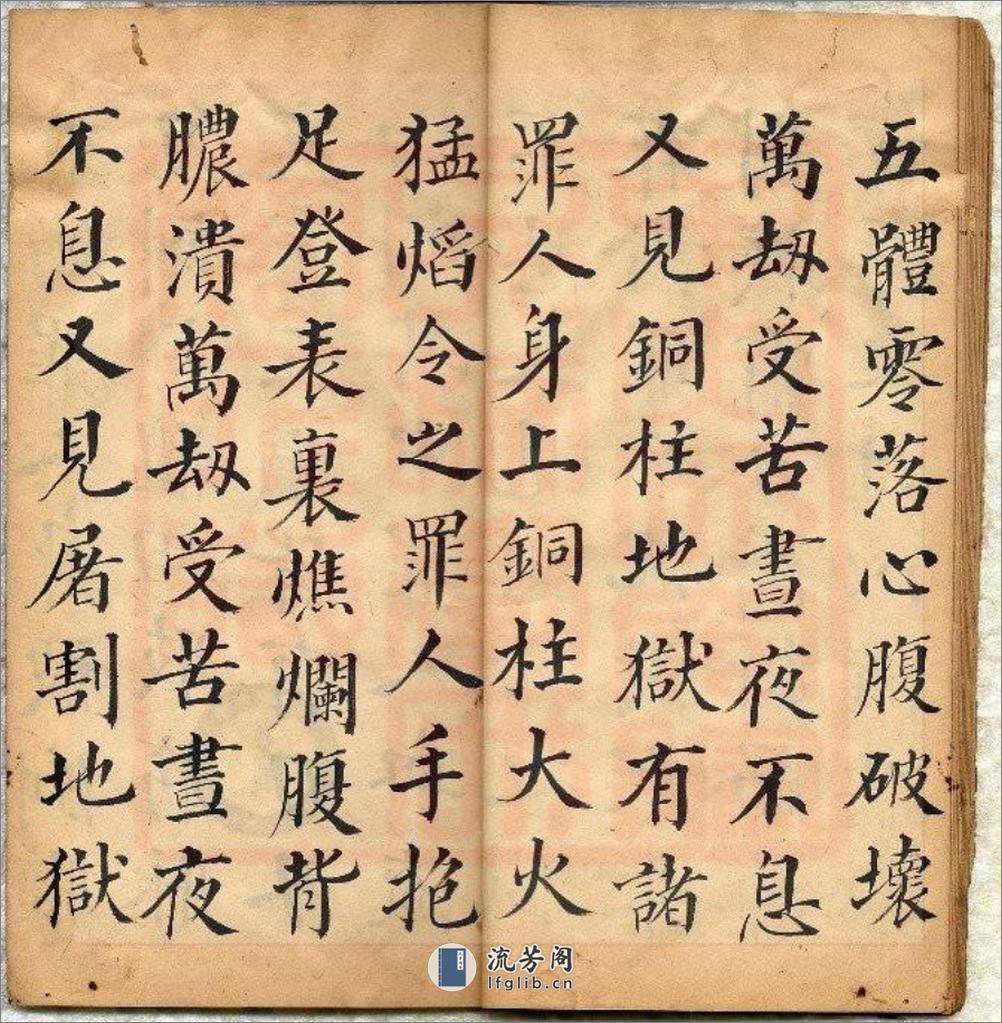 五體零落心腹破壞
萬劫受苦晝夜不息
又見銅柱地獄有諸
罪人身上銅柱大火
猛熖令之罪人手抱
足登表裏燋爛腹背
膿潰萬劫受苦晝夜
不息又見屠割地獄
流芳阁
lfglib.cn